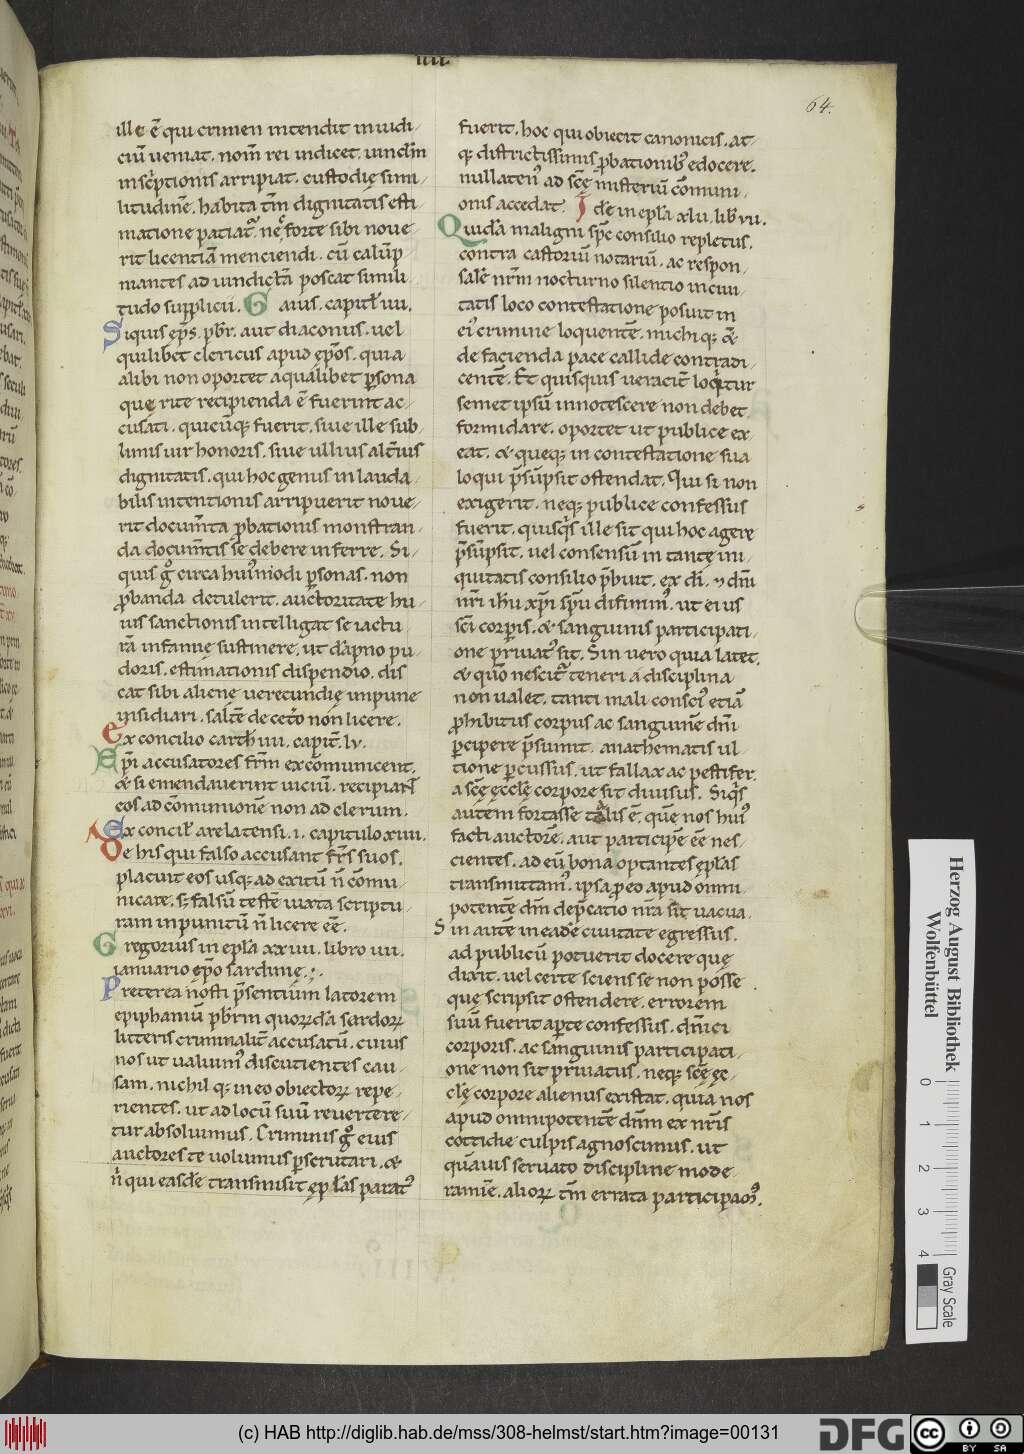 IIII.
64.
ille ē qui crimen intendit in iudi
ciū ueniat. nom̄ rei indicet. uincl̄m
inscͥptionis arripiat. custodię simi
litudinē. habita tm̄ dignitatis esti
matione patiat᷑. nec̄ forte sibi noue
rit licentiā menciendi. cū calūp
niantes ad uindictā poscat simili
tudo supplicii. Gaius. capitł iiii.
Siquis ep̄s. pb̄r. aut diaconus. uel
quilibet clericus apud ep̄os. quia
alibi non oportet a qualibet ꝑsona
que rite recipienda ē fuerint ac
cusati. quicūqꝫ fuerit. siue ille sub
limis uir honoris. siue ullius alt̄ius
dignitatis. qui hoc genus inlauda
bilis intentionis arripuerit noue
rit docum̄ta ꝓbationis monstran
da docum̄tis se debere inferre. Si
quis gͦ circa hui᷒modi ꝑsonas. non
ꝓbanda detulerit. auctoritate hu
ius sanctionis intelligat se iactu
rā infamie sustinere. ut dāpno pu
doris. estimationis dispendio. dis
cat sibi aliene uerecundię impune
insidiari. saltē de cet̄o non licere.
Ex concilio carth̄ iiii. capit̄. lv.
Ep̄i accusatores fr̄m excōmunicent.
& si emendauerint uiciū. recipiant
eos ad cōmunionē non ad clerum.
Ex concił arelatensi. i. capitulo xiiii.
De his qui falso accusant fr̄s suos.
placuit eos usqꝫ ad exitū n̄ cōmu
nicare. sꝫ falsū testē iuxta scriptu
ram inpunitū n̄ licere eē.
Gregorius in epl̄a xxiiii. libro iii.
ianuario ep̄o sardinie.
Preterea nosti p̄sentium latorem
epiphaniū pb̄rm quorꝝdā sardorꝝ
litteris criminalit̄ accusatū. cuius
nos ut ualuim᷒ discutientes cau
sam. nichil qꝫ in eo obiectorꝝ repe
rientes. ut ad locū suū reuertere
tur absoluimus. Criminis gͦ eius
auctores te uolumus ꝑscrutari. &
nͥ qui easdē transmisit ep̄l̄as parat᷒
fuerit. hoc qui obiecit canonicis. at
qꝫ districtissimis ꝓbationibꝫ edocere.
nullaten᷒ ad scē misteriū cōmuni
onis accedat. Idē in epl̄a xlii. lib̄ vii.
Quidā maligni sp̄c consilio repletus.
contra castoriū notariū. ac respon
salē nr̄m nocturno silentio in ciui
tatis loco contestatione posuit in
ei᷒ crimine loquentē. michi qꝫ &
de facienda pace callide contradi
centē. Et quisquis ueracit̄ loqͥtur
semet ipsū innotescere non debet
formidare. oportet ut publice ex
eat. & queqꝫ in contestatione sua
loqui p̄sūpsit ostendat. Qui si non
exigerit. neqꝫ publice confessus
fuerit. quisqͥs ille sit qui hoc agere
p̄sūpsit. uel consensū in tantę ini
quitatis consilio p̄buit. ex dī. ⁊ dn̄i
nr̄i ih̄u xp̄i sp̄u difinim᷒. ut eius
sc̄i corꝑis. & sanguinis participati
one priuat᷒ sit. Sin uero quia latet.
& quō nescit᷑ teneri a disciplina
non ualet. tanti mali consci᷒ etiā
ꝓhibitus corpus ac sanguinē dn̄i
ꝑcipere p̄sumit. anathematis ul
tione ꝑcussus. ut fallax ac pestifer.
a scē ęcclę corpore sit diuisus. Siqͥs
autem fortasse talis ē. quē nos hui᷒
facti auctorē. aut participē eē nes
cientes. ad eū bona optantes epl̄as
transmittam᷒. ipsa ꝓ eo apud omni
potentē dn̄m dep̄catio nr̄a sit uacua.
Sin autē in eadē ciuitate egressus.
ad publicū potuerit docere que
dixit. uel certe sciens se non posse
que scripsit ostendere. errorem
suū fuerit aꝑte confessus. dn̄ici
corporis. ac sanguinis participati
one non sit priuatus. neqꝫ scē ęc
clę corpore alienus existat. quia nos
apud omnipotentē dn̄m ex nr̄is
cottidie culpis agnoscimus. ut
quāuis seruato discipline mode
ramīe. aliorꝝ tm̄ errata participam᷒.
Herzog August Bibliothek
Wolfenbüttel
0 1 2 3 4
Gray Scale
(c) HAB http://diglib.hab.de/mss/308-helmst/start.htm?image=00131
DFG
cc
BY SA